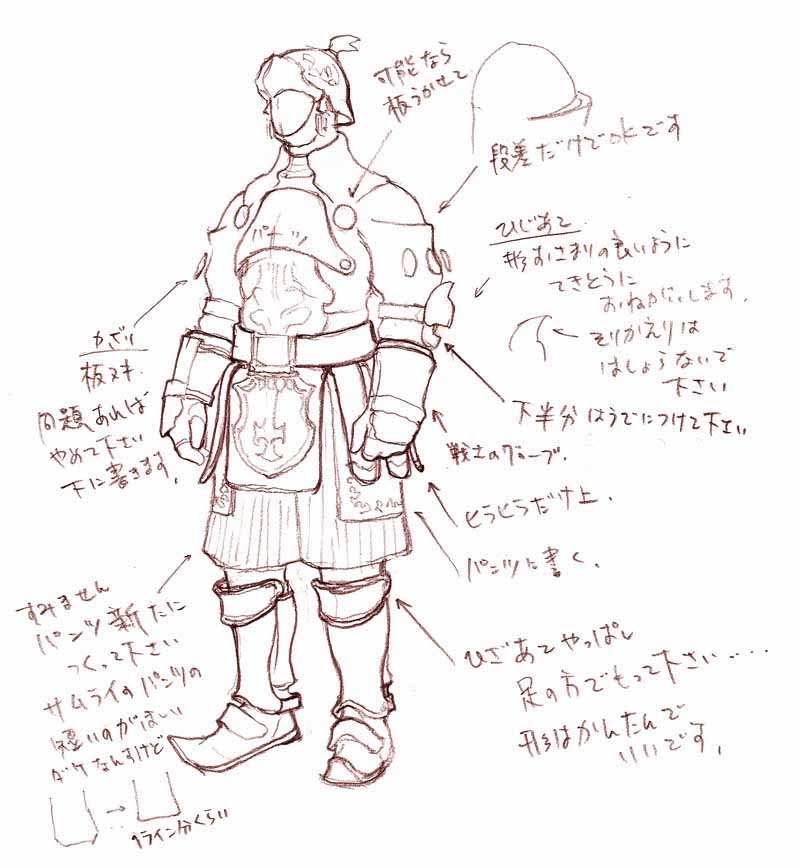 可能なら
板うかせて
段差だけでOKです
パーツ
ひじあて
形おさまりの良いように
てきとうに
おねがいします。
そりかえりは
はしょらないで
下さい
下半分はうでにつけて下さい
かざり
板ヌキ.
問題あれば
やめて下さい
下に書きます。
戦士のグローブ.
ヒラヒラだけ上.
パンツに書く.
すみません
パンツ新たに
つくって下さい
サムライのパンツの
短いのがほしい
ダケなんすけど
1ライン分くらい
ひざあてやっぱし
足の方でもって下さい……
形はかんたんで
いいです。